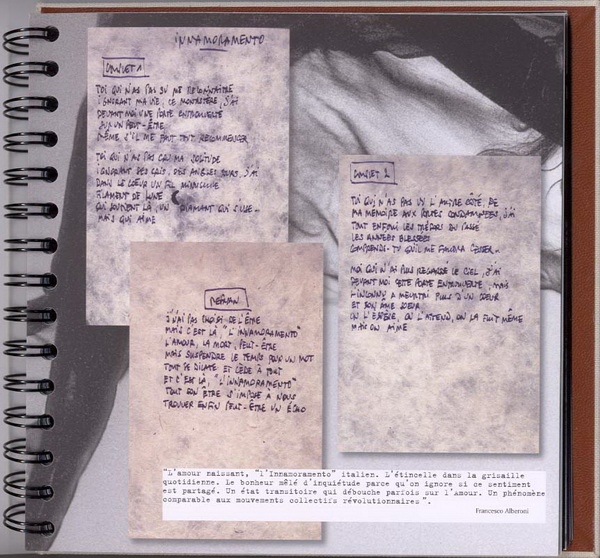 INNAMORAMENTO
COUPLET 1
TOI QUI N'AS PAS SU ME RECONNAÎTRE
IGNORANT MA VIE, CE MONASTÈRE, J'AI
DEVANT MOI UNE PORTE ENTROUVERTE
SUR UN PEUT-ÊTRE
MÊME S'IL ME FAUT TOUT RECOMMENCER
TOI QUI N'AS PAS CRU MA SOLITUDE
IGNORANT SES CRIS, SES ANGLES DURS, J'AI
DANS LE COEUR UN FIL MINUSCULE
FILAMENT DE LUNE
QUI SOUTIENT LÀ, UN DIAMANT QUI S'USE..
MAIS QUI AIME
REFRAIN
J'N'AI PAS CHOISI DE L'ÊTRE
MAIS C'EST LÀ, "L'INNAMORAMENTO"
L'AMOUR, LA MORT, PEUT-ÊTRE
MAIS SUSPENDRE LE TEMPS POUR UN MOT
TOUT SE DILATE ET CÈDE À TOUT
ET C'EST LÀ, "L'INNAMORAMENTO"
TOUT SON ÊTRE S'IMPOSE À NOUS
TROUVER ENFIN PEUT-ÊTRE UN ÉCHO
COUPLET 2
TOI QUI N'AS PAS VU L'AUTRE CÔTÉ, DE
MA MÉMOIRE AUX PORTES CONDAMNÉES, J'AI
TOUT ENFOUI LES TRÉSORS DU PASSÉ
LES ANNÉES BLESSÉES
COMPRENDS-TU QU'IL ME FAUDRA CESSER..
MOI QUI N'AI PLUS REGARDÉ LE CIEL, J'AI
DEVANT MOI CETTE PORTE ENTROUVERTE, MAIS
L'INCONNU A MEURTRI PLUS D'UN COEUR
ET SON ÂME SOEUR
ON L'ESPÈRE, ON L'ATTEND, ON LA FUIT MÊME
MAIS ON AIME
"L'amour naissant, "l'Innamoramento" italien. L'étincelle dans la grisaille
quotidienne. Le bonheur mêlé d'inquiétude parce qu'on ignore si ce sentiment
est partagé. Un état transitoire qui débouche parfois sur l'Amour. Un phénomène
comparable aux mouvements collectifs révolutionnaires".
Francesco Alberoni